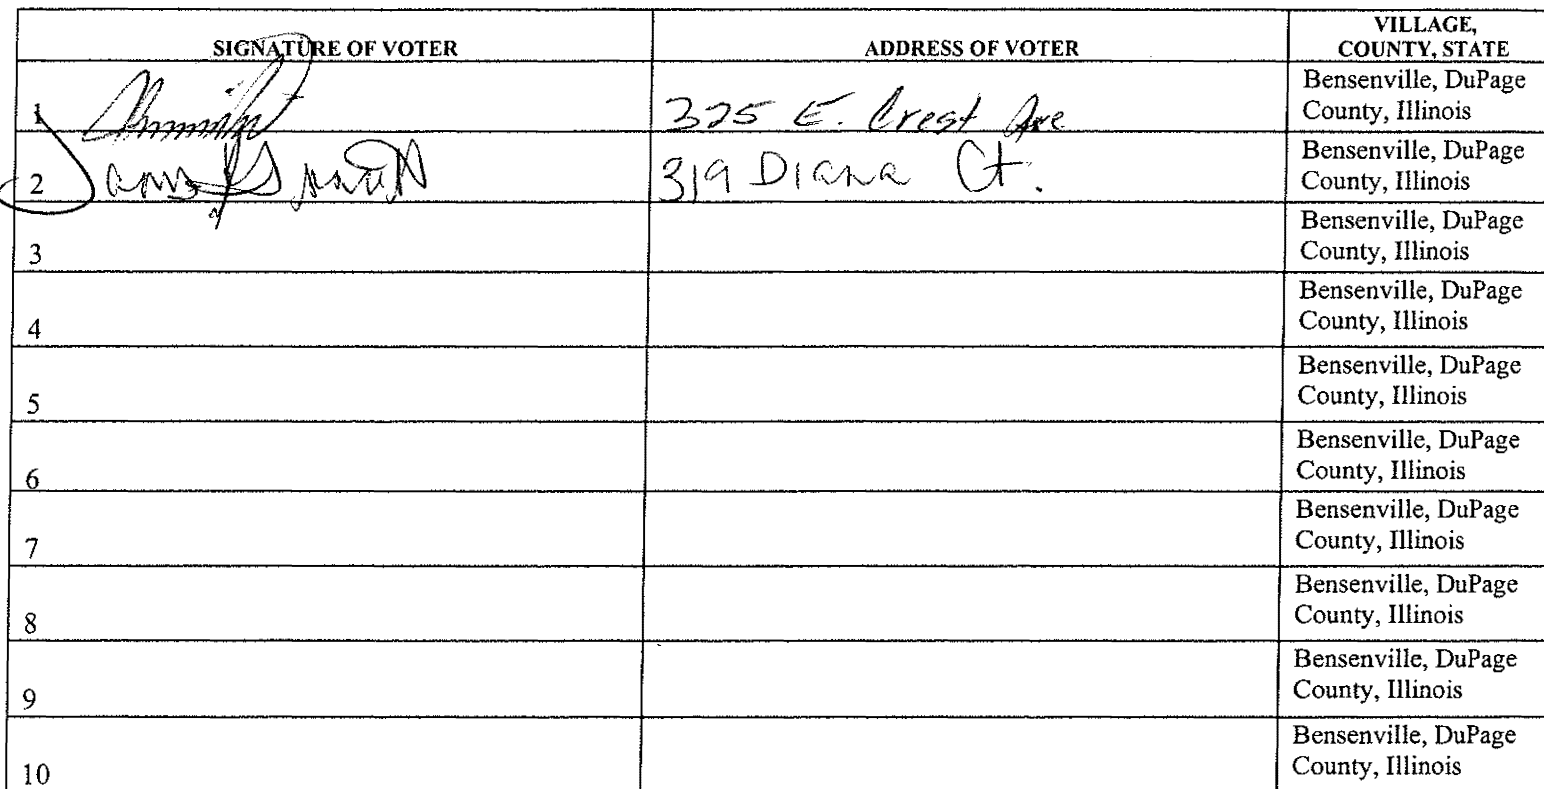 SIGNATURE OF VOTER ADDRESS OF VOTER VILLAGE,
COUNTY, STATE
1 325 E. Crest Ave Bensenville, DuPage
County, Illinois
2 319 Diana Ct. Bensenville, DuPage
County, Illinois
3 Bensenville, DuPage
County, Illinois
4 Bensenville, DuPage
County, Illinois
5 Bensenville, DuPage
County, Illinois
6 Bensenville, DuPage
County, Illinois
7 Bensenville, DuPage
County, Illinois
8 Bensenville, DuPage
County, Illinois
9 Bensenville, DuPage
County, Illinois
10 Bensenville, DuPage
County, Illinois